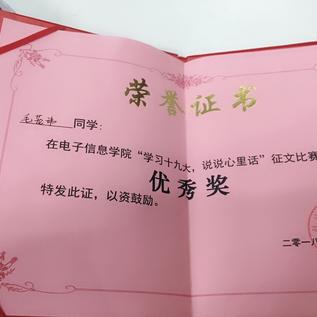 荣誉证书
毛 同学：
在电子信息学院“学习十九大，说说心里话”征文比赛
优秀奖
特发此证，以资鼓励。
二零一八